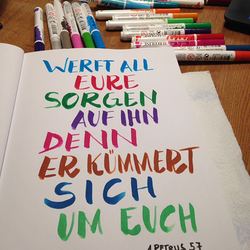 WERFT ALL
EURE
SORGEN
AUF IHN
DENN
ER KÜMMERT
SICH
UM EUCH
1 PETRUS 5,7